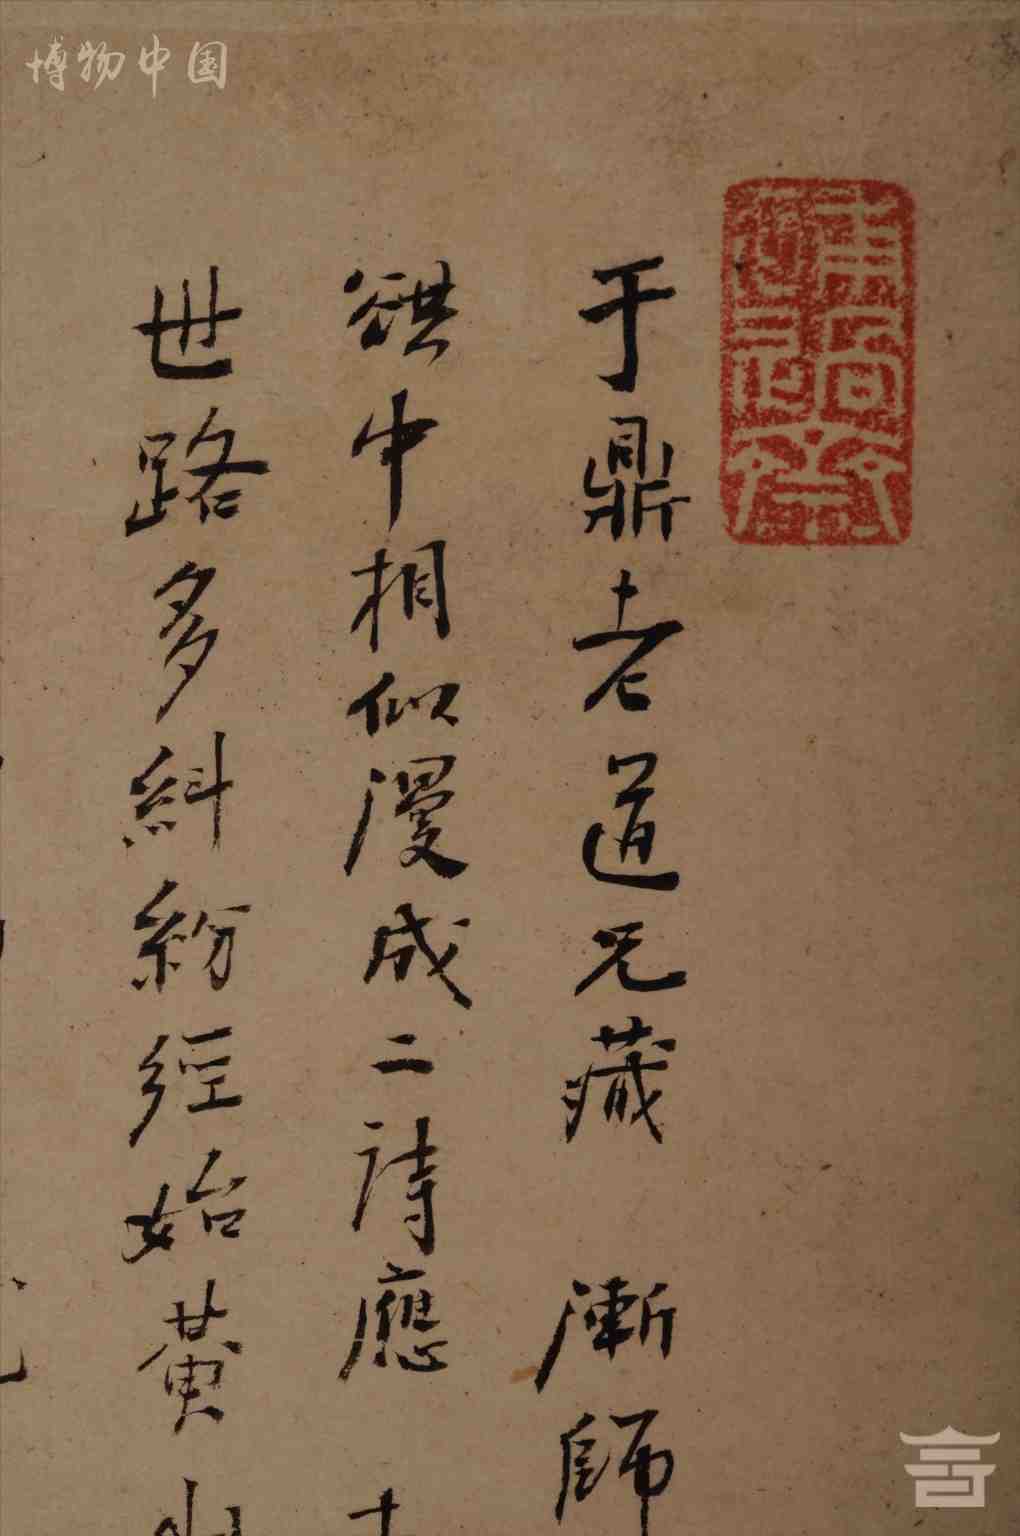 博物中国
于鼎老道兄藏 漸師
谼中相似漫成二詩應
世路多糾紛經始黃